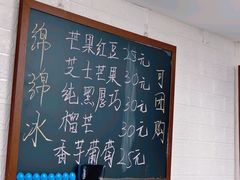 绵绵冰
芒果红豆 25元
芝士芒果 30元
纯黑厚巧 30元
榴芒 30元
香芋葡萄 25元
可团购